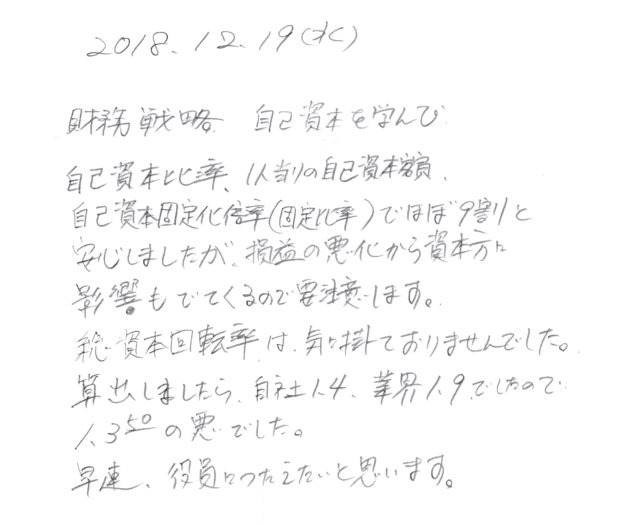 2018.12.19(水)
財務戦略 自己資本を学んび
自己資本比率、1人当りの自己資本額、
自己資本固定化倍率(固定比率)でほぼ9割りと
安心しましたが、損益の悪化から資本方に
影響もでてくるので要注意します。
総資本回転率は、気に掛ておりませんでした。
算出しましたら、自社1.4、業界1.9でしたので
1.350の悪でした。
早速、役員につたえたいと思います。